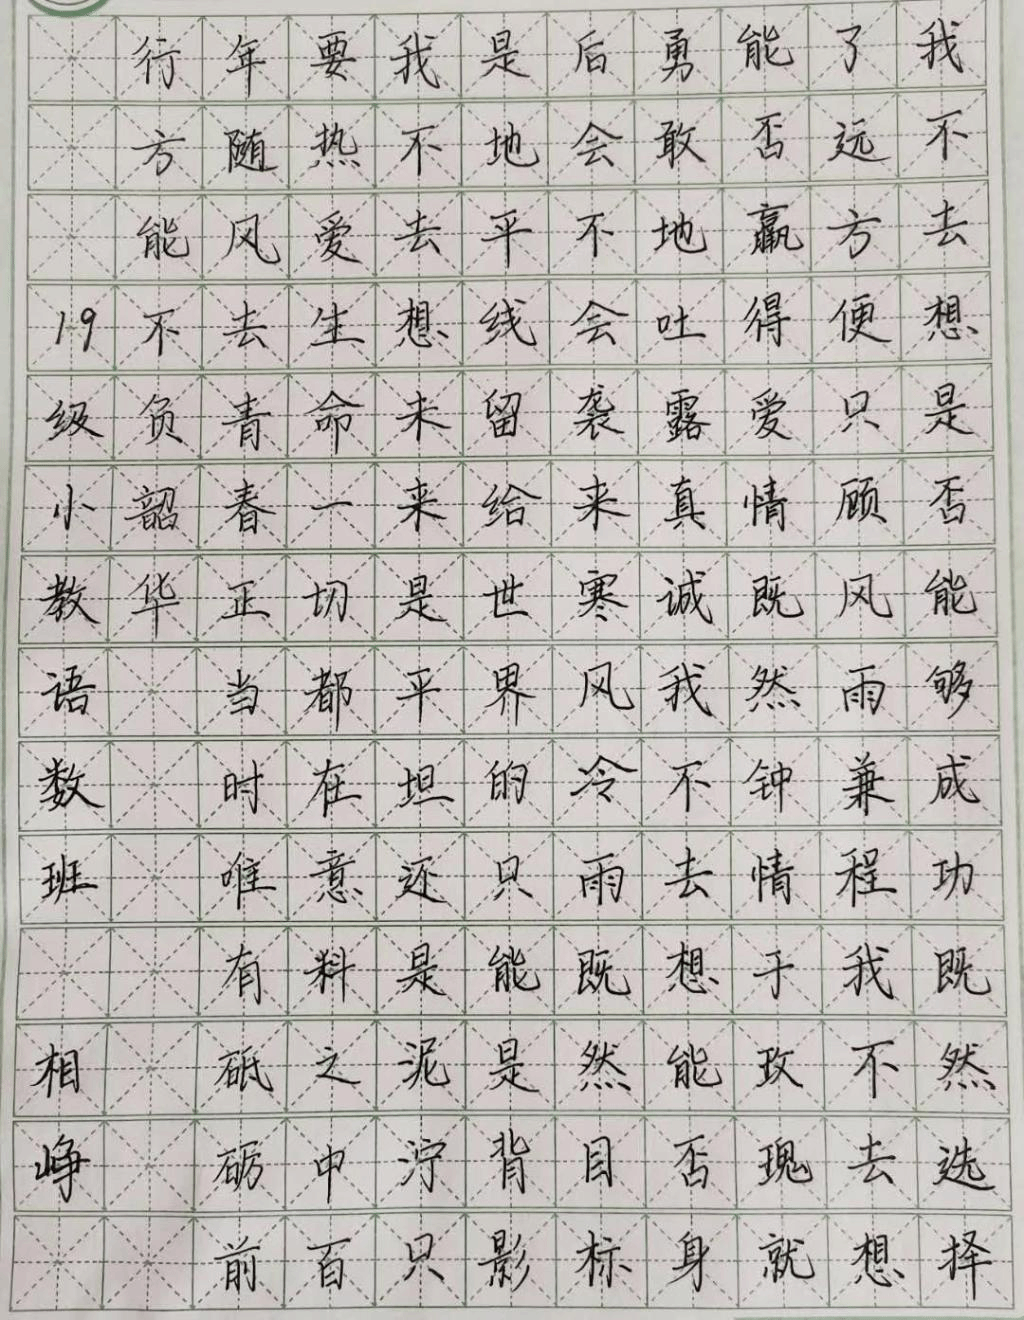 我不去想是否能够成功既然选择
了远方便只顾风雨兼程我不去想
能否赢得爱情既然钟情于玫瑰就
勇敢地吐露真诚我不去想能否身
后会不会袭来寒风冷雨既然目标
是地平线留给世界的只能是背影
我不去想未来是平坦还是泥泞只
要热爱生命一切都在意料之中百
年随风去青春正当时唯有砥砺前
行方能不负韶华
19级小教语数班 相峥